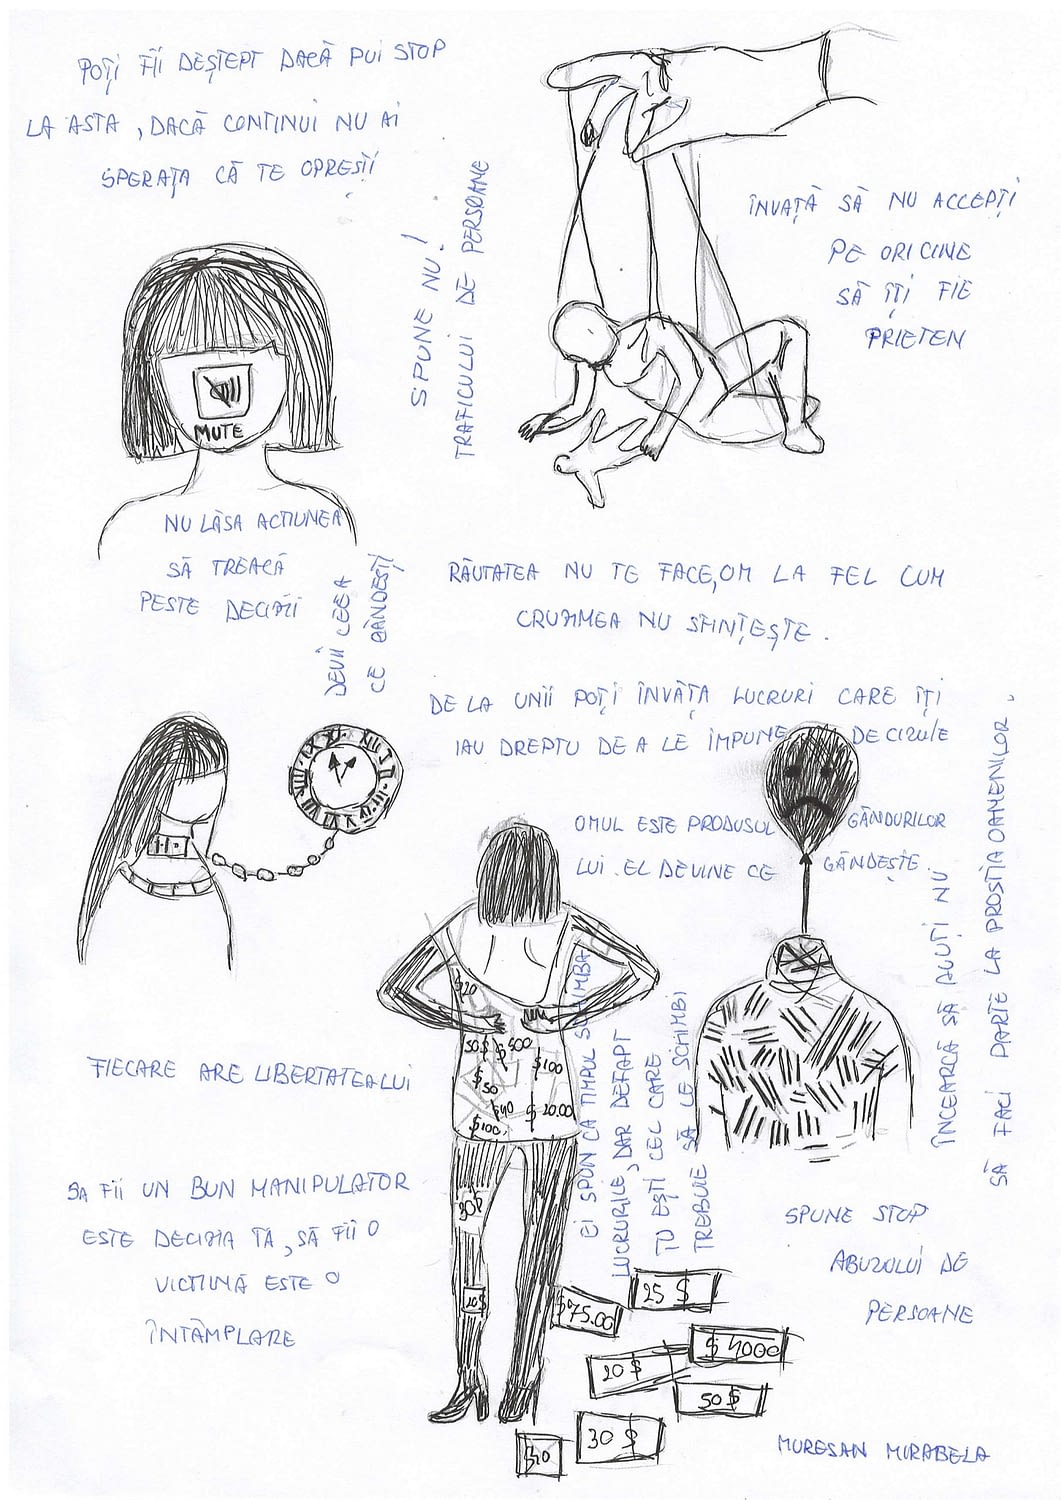 POȚI FII DEȘTEPT DACĂ PUI STOP
LA ASTA, DACĂ CONTINUI NU AI
SPERAȚA CĂ TE OPREȘTI
SPUNE NU!
TRAFICULUI DE PERSOANE
ÎNVAȚĂ SĂ NU ACCEPȚI
PE ORICINE
SĂ ÎȚI FIE
PRIETEN
MUTE
NU LĂSA ACTIUNEA
SĂ TREACĂ
PESTE DECIZII
DEVII CEEA
CE GÂNDEȘTI
RĂUTATEA NU TE FACE, OM LA FEL CUM
CRUZIMEA NU SFINȚEȘTE.
DE LA UNII POȚI ÎNVĂȚA LUCRURI CARE ÎȚI
IAU DREPTU DE A LE IMPUNE DECIZIILE
XII
OMUL ESTE PRODUSUL GÂNDURILOR
LUI. EL DEVINE CE GÂNDEȘTE.
ÎNCEARCĂ SĂ AJUȚI NU
SĂ FACI PARTE LA PROSTIA OAMENILOR.
$20
50$ $400
$100
$50
$40 $20.00
$100.
30$
20$
EI SPUN CA TIMPUL SCHIMBA
LUCRURILE, DAR DEFAPT
TU EȘTI CEL CARE
TREBUIE SĂ LE SCHIMBI
FIECARE ARE LIBERTATEA LUI
SA FII UN BUN MANIPULATOR
ESTE DECIZIA TA, SĂ FII O
VICTIMĂ ESTE O
ÎNTÂMPLARE
SPUNE STOP
ABUZULUI DE
PERSOANE
25 $
$75.00
$ 4000
20 $
50 $
30 $
$10
MURESAN MIRABELA